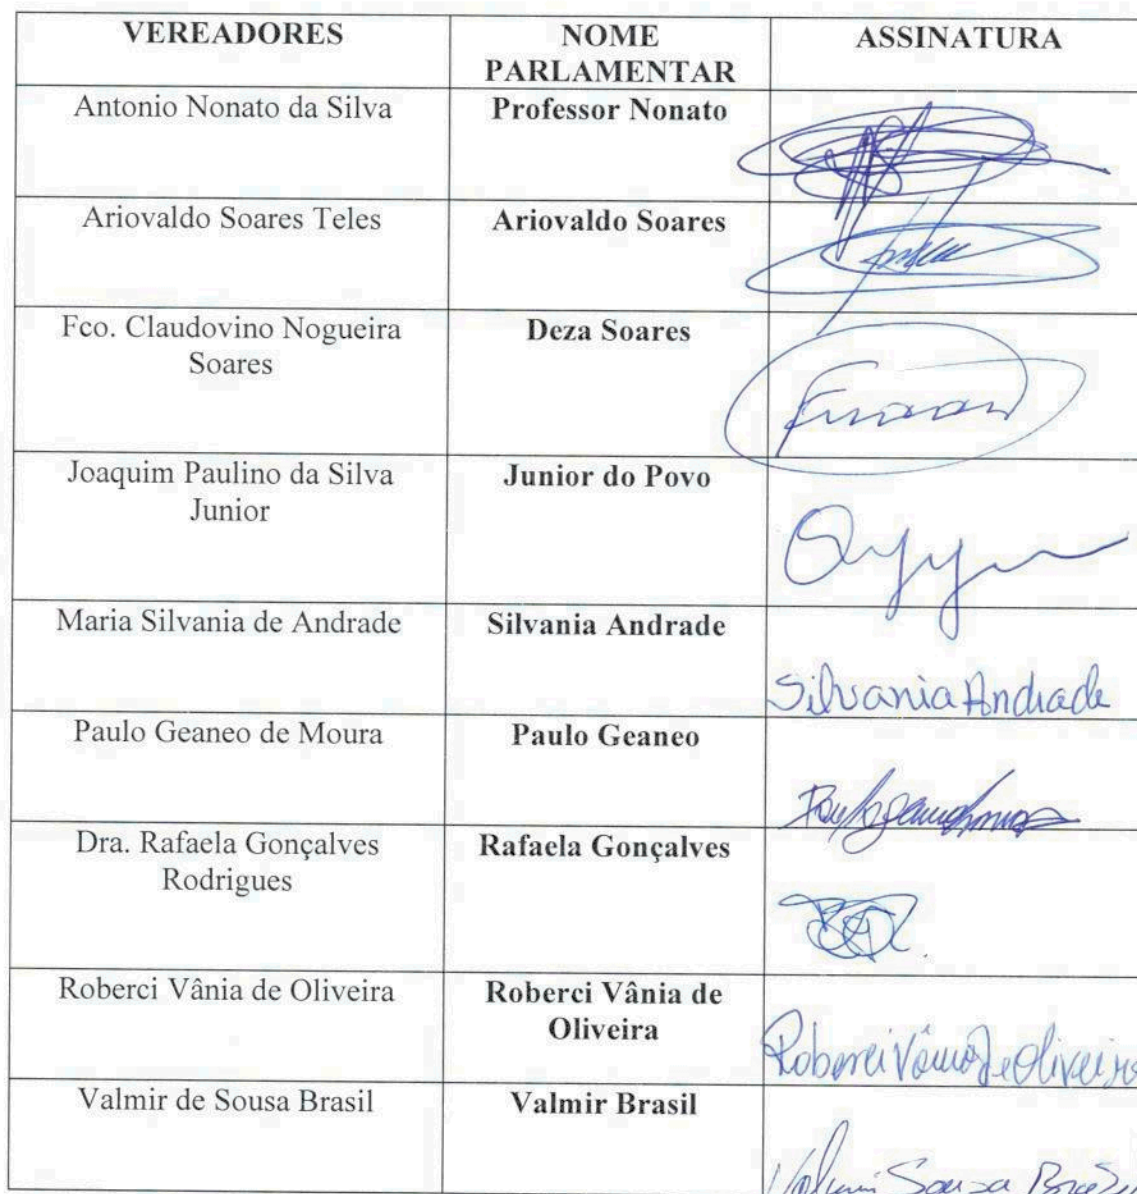 VEREADORES NOME PARLAMENTAR ASSINATURA
Antonio Nonato da Silva Professor Nonato
Ariovaldo Soares Teles Ariovaldo Soares
Fco. Claudovino Nogueira Soares Deza Soares
Joaquim Paulino da Silva Junior Junior do Povo
Maria Silvania de Andrade Silvania Andrade Silvania Andrade
Paulo Geaneo de Moura Paulo Geaneo
Dra. Rafaela Gonçalves Rodrigues Rafaela Gonçalves
Roberci Vânia de Oliveira Roberci Vânia de Oliveira Roberci Vânia de Oliveira
Valmir de Sousa Brasil Valmir Brasil Valmir Sousa Brasil